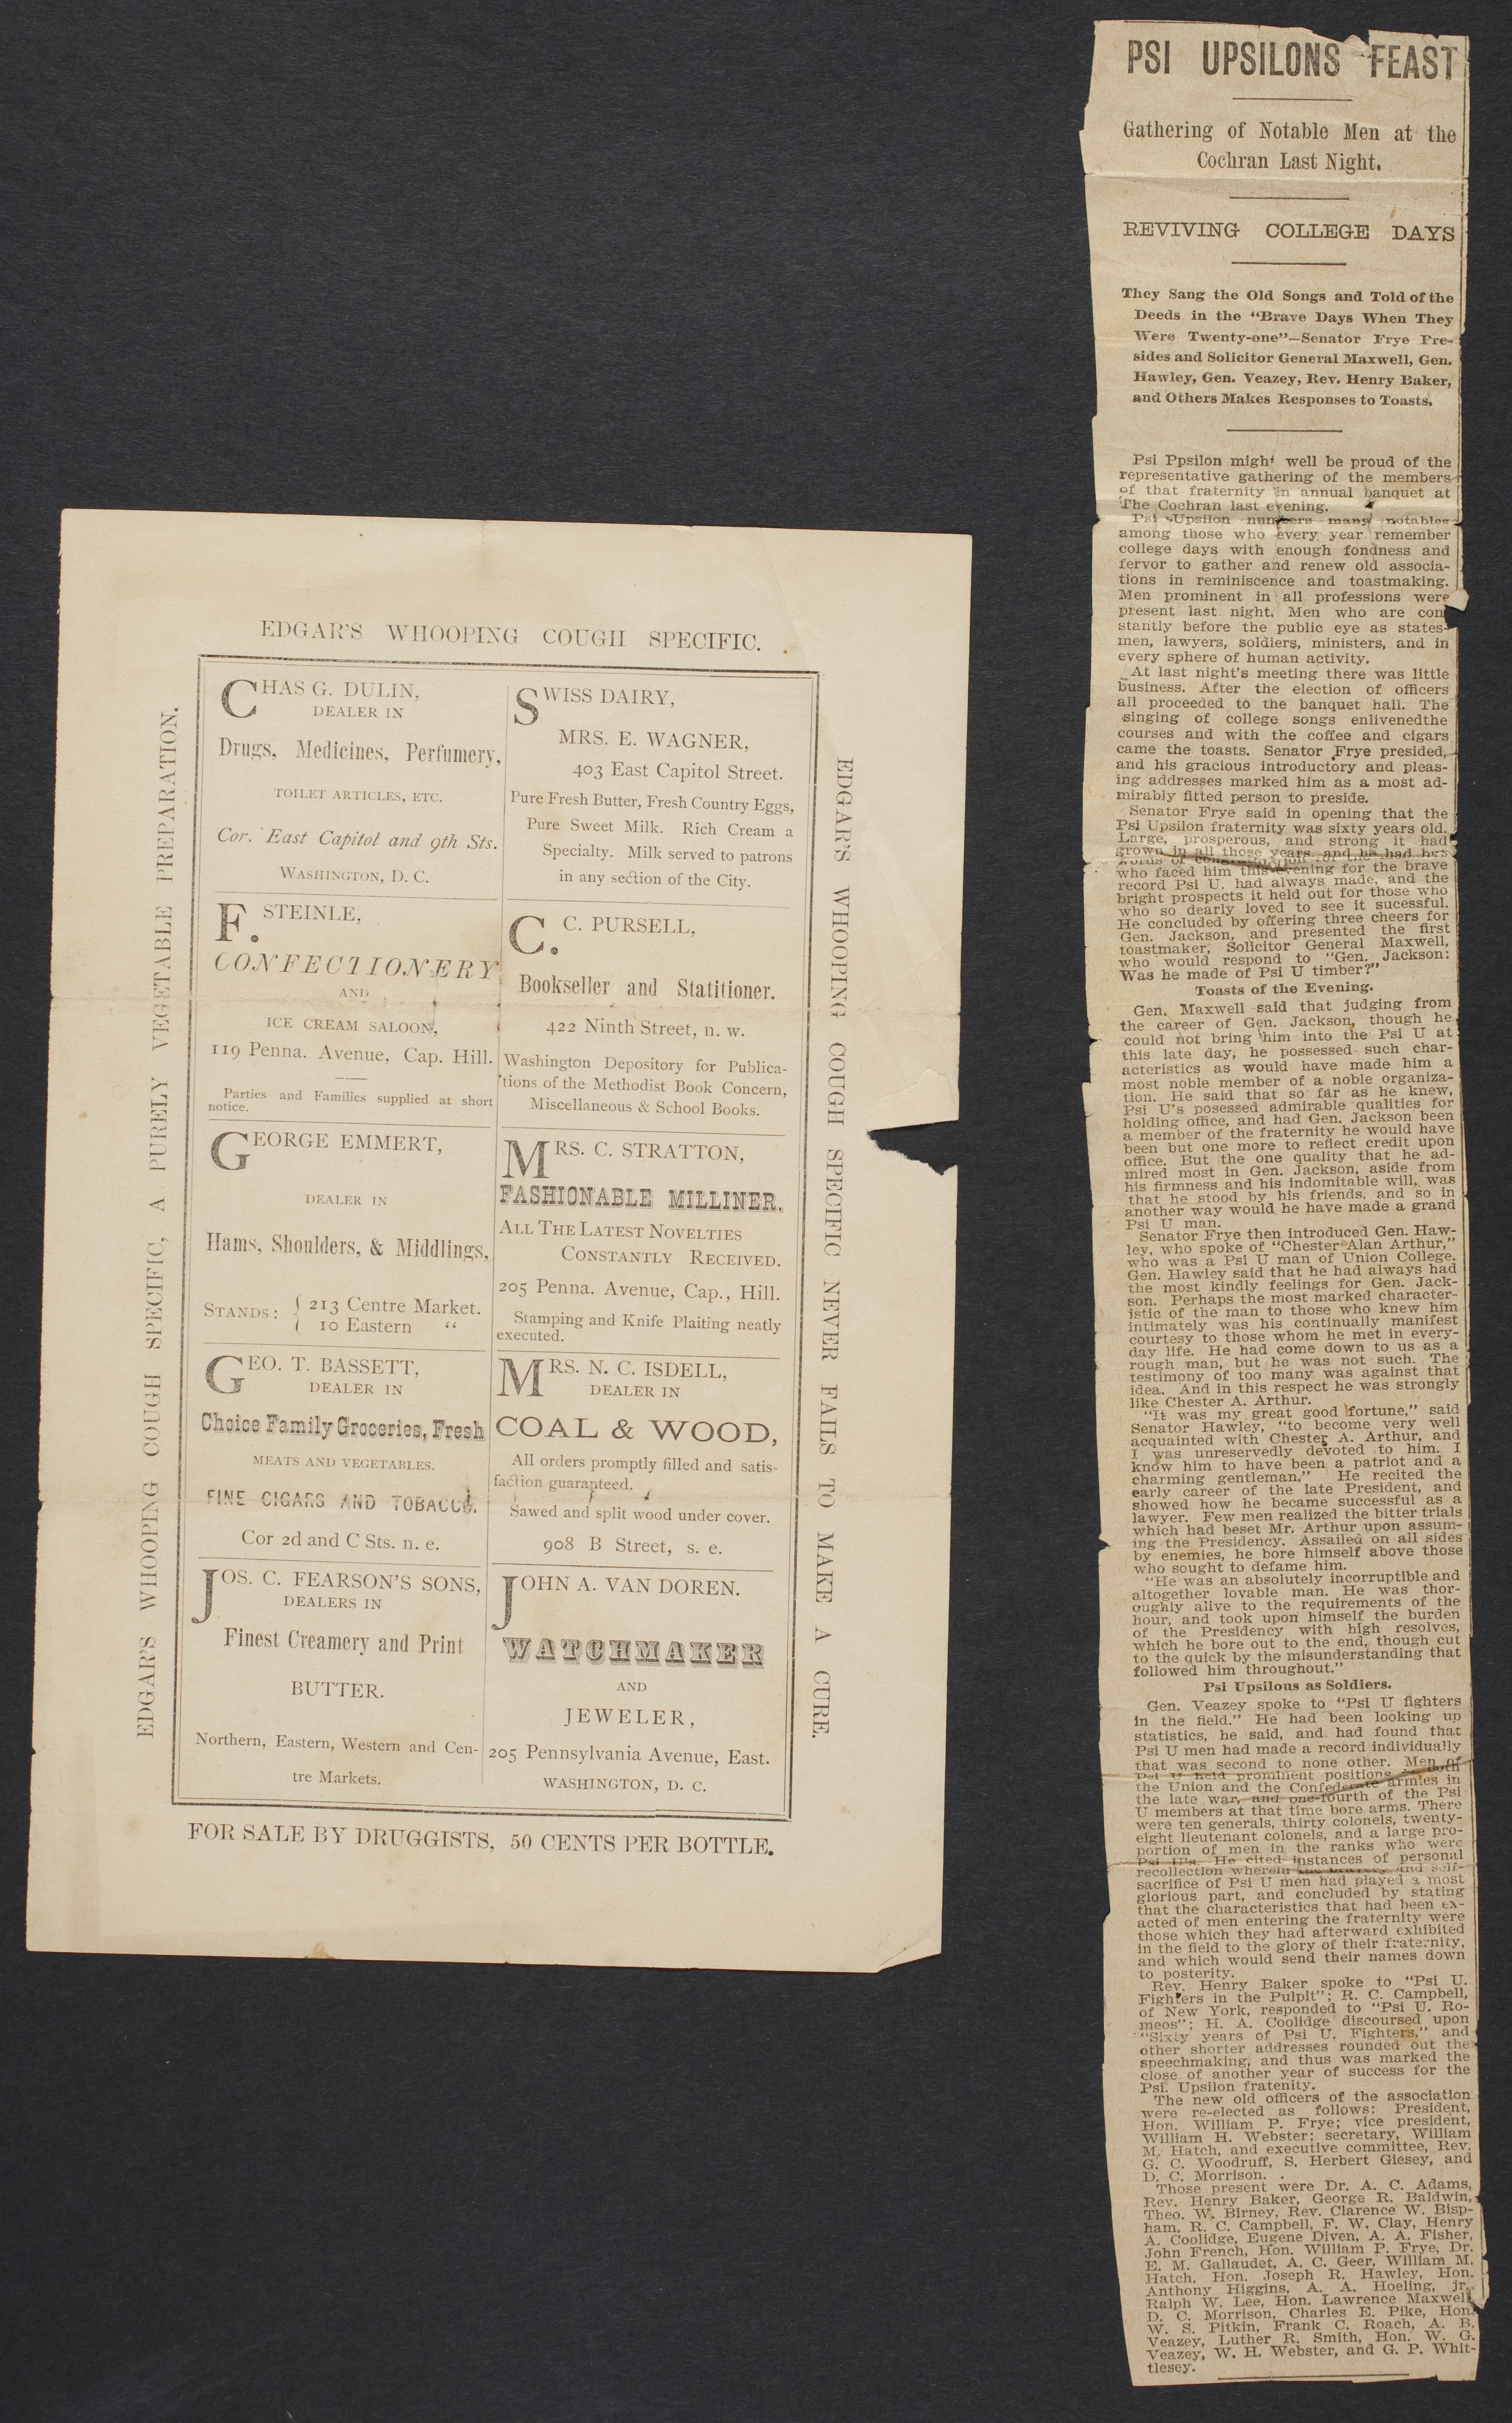 EDGAR'S WHOOPING COUGH SPECIFIC.
EDGAR'S WHOOPING COUGH SPECIFIC, A PURELY VEGETABLE PREPARATION.
CHAS G. DULIN,
DEALER IN
Drugs, Medicines, Perfumery,
TOILET ARTICLES, ETC.
Cor. East Capitol and 9th Sts.
WASHINGTON, D. C.
F. STEINLE,
CONFECTIONERY
AND
ICE CREAM SALOON,
119 Penna. Avenue, Cap. Hill.
Parties and Families supplied at short
notice.
GEORGE EMMERT,
DEALER IN
Hams, Shoulders, & Middlings,
STANDS: { 213 Centre Market.
{ 10 Eastern "
GEO. T. BASSETT,
DEALER IN
Choice Family Groceries, Fresh
MEATS AND VEGETABLES.
FINE CIGARS AND TOBACCO.
Cor 2d and C Sts. n. e.
JOS. C. FEARSON'S SONS,
DEALERS IN
Finest Creamery and Print
BUTTER.
Northern, Eastern, Western and Cen-
tre Markets.
SWISS DAIRY,
MRS. E. WAGNER,
403 East Capitol Street.
Pure Fresh Butter, Fresh Country Eggs,
Pure Sweet Milk. Rich Cream a
Specialty. Milk served to patrons
in any section of the City.
C. C. PURSELL,
Bookseller and Statitioner.
422 Ninth Street, n. w.
Washington Depository for Publica-
tions of the Methodist Book Concern,
Miscellaneous & School Books.
MRS. C. STRATTON,
FASHIONABLE MILLINER.
ALL THE LATEST NOVELTIES
CONSTANTLY RECEIVED.
205 Penna. Avenue, Cap., Hill.
Stamping and Knife Plaiting neatly
executed.
MRS. N. C. ISDELL,
DEALER IN
COAL & WOOD,
All orders promptly filled and satis-
faction guaranteed.
Sawed and split wood under cover.
908 B Street, s. e.
JOHN A. VAN DOREN.
WATCHMAKER
AND
JEWELER,
205 Pennsylvania Avenue, East.
WASHINGTON, D. C.
EDGAR'S WHOOPING COUGH SPECIFIC NEVER FAILS TO MAKE A CURE.
FOR SALE BY DRUGGISTS, 50 CENTS PER BOTTLE.
PSI UPSILONS FEAST
Gathering of Notable Men at the
Cochran Last Night.
REVIVING COLLEGE DAYS
They Sang the Old Songs and Told of the
Deeds in the "Brave Days When They
Were Twenty-one"—Senator Frye Pre-
sides and Solicitor General Maxwell, Gen.
Hawley, Gen. Veazey, Rev. Henry Baker,
and Others Makes Responses to Toasts.
Psi Ppsilon might well be proud of the
representative gathering of the members
of that fraternity in annual banquet at
The Cochran last evening.
Psi Upsilon numbers many notables
among those who every year remember
college days with enough fondness and
fervor to gather and renew old associa-
tions in reminiscence and toastmaking.
Men prominent in all professions were
present last night. Men who are con
stantly before the public eye as states-
men, lawyers, soldiers, ministers, and in
every sphere of human activity.
At last night's meeting there was little
business. After the election of officers
all proceeded to the banquet hall. The
singing of college songs enlivenedthe
courses and with the coffee and cigars
came the toasts. Senator Frye presided,
and his gracious introductory and pleas-
ing addresses marked him as a most ad-
mirably fitted person to preside.
Senator Frye said in opening that the
Psi Upsilon fraternity was sixty years old.
Large, prosperous, and strong it had
grown in all those years, and he had
words of for the
who faced him this evening for the brave
record Psi U. had always made, and the
bright prospects it held out for those who
who so dearly loved to see it sucessful.
He concluded by offering three cheers for
Gen. Jackson, and presented the first
toastmaker, Solicitor General Maxwell,
who would respond to "Gen. Jackson:
Was he made of Psi U timber?"
Toasts of the Evening.
Gen. Maxwell said that judging from
the career of Gen. Jackson, though he
could not bring him into the Psi U at
this late day, he possessed such char-
acteristics as would have made him a
most noble member of a noble organiza-
tion. He said that so far as he knew,
Psi U's posessed admirable qualities for
holding office, and had Gen. Jackson been
a member of the fraternity he would have
been but one more to reflect credit upon
office. But the one quality that he ad-
mired most in Gen. Jackson, aside from
his firmness and his indomitable will, was
that he stood by his friends, and so in
another way would he have made a grand
Psi U man.
Senator Frye then introduced Gen. Haw-
ley, who spoke of "Chester Alan Arthur,"
who was a Psi U man of Union College.
Gen. Hawley said that he had always had
the most kindly feelings for Gen. Jack-
son. Perhaps the most marked character-
istic of the man to those who knew him
intimately was his continually manifest
courtesy to those whom he met in every-
day life. He had come down to us as a
rough man, but he was not such. The
testimony of too many was against that
idea. And in this respect he was strongly
like Chester A. Arthur.
"It was my great good fortune," said
Senator Hawley, "to become very well
acquainted with Chester A. Arthur, and
I was unreservedly devoted to him. I
know him to have been a patriot and a
charming gentleman." He recited the
early career of the late President, and
showed how he became successful as a
lawyer. Few men realized the bitter trials
which had beset Mr. Arthur upon assum-
ing the Presidency. Assailed on all sides
by enemies, he bore himself above those
who sought to defame him.
"He was an absolutely incorruptible and
altogether lovable man. He was thor-
oughly alive to the requirements of the
hour, and took upon himself the burden
of the Presidency with high resolves,
which he bore out to the end, though cut
to the quick by the misunderstanding that
followed him throughout."
Psi Upsilons as Soldiers.
Gen. Veazey spoke to "Psi U fighters
in the field." He had been looking up
statistics, he said, and had found that
Psi U men had made a record individually
that was second to none other. Men of
Psi U held prominent positions in both
the Union and the Confederate armies in
the late war, and one-fourth of the Psi
U members at that time bore arms. There
were ten generals, thirty colonels, twenty-
eight lieutenant colonels, and a large pro-
portion of men in the ranks who were
Psi U's. He cited instances of personal
recollection wherein the and self-
sacrifice of Psi U men had played a most
glorious part, and concluded by stating
that the characteristics that had been ex-
acted of men entering the fraternity were
those which they had afterward exhibited
in the field to the glory of their fraternity,
and which would send their names down
to posterity.
Rev. Henry Baker spoke to "Psi U.
Fighters in the Pulpit"; R. C. Campbell,
of New York, responded to "Psi U. Ro-
meos"; H. A. Coolidge discoursed upon
"Sixty years of Psi U. Fighters," and
other shorter addresses rounded out the
speechmaking, and thus was marked the
close of another year of success for the
Psi. Upsilon fratenity.
The new old officers of the association
were re-elected as follows: President,
Hon. William P. Frye; vice president,
William H. Webster; secretary, William
M. Hatch, and executive committee, Rev.
G. C. Woodruff, S. Herbert Giesey, and
D. C. Morrison.
Those present were Dr. A. C. Adams,
Rev. Henry Baker, George R. Baldwin,
Theo. W. Birney, Rev. Clarence W. Bisp-
ham, R. C. Campbell, F. W. Clay, Henry
A. Coolidge, Eugene Diven, A. A. Fisher,
John French, Hon. William P. Frye, Dr.
E. M. Gallaudet, A. C. Geer, William M.
Hatch, Hon. Joseph R. Hawley, Hon.
Anthony Higgins, A. A. Hoeling, jr.,
Ralph W. Lee, Hon. Lawrence Maxwell,
D. C. Morrison, Charles E. Pike, Hon.
W. S. Pitkin, Frank C. Roach, A. B.
Veazey, Luther R. Smith, Hon. W. G.
Veazey, W. H. Webster, and G. P. Whit-
tlesey.